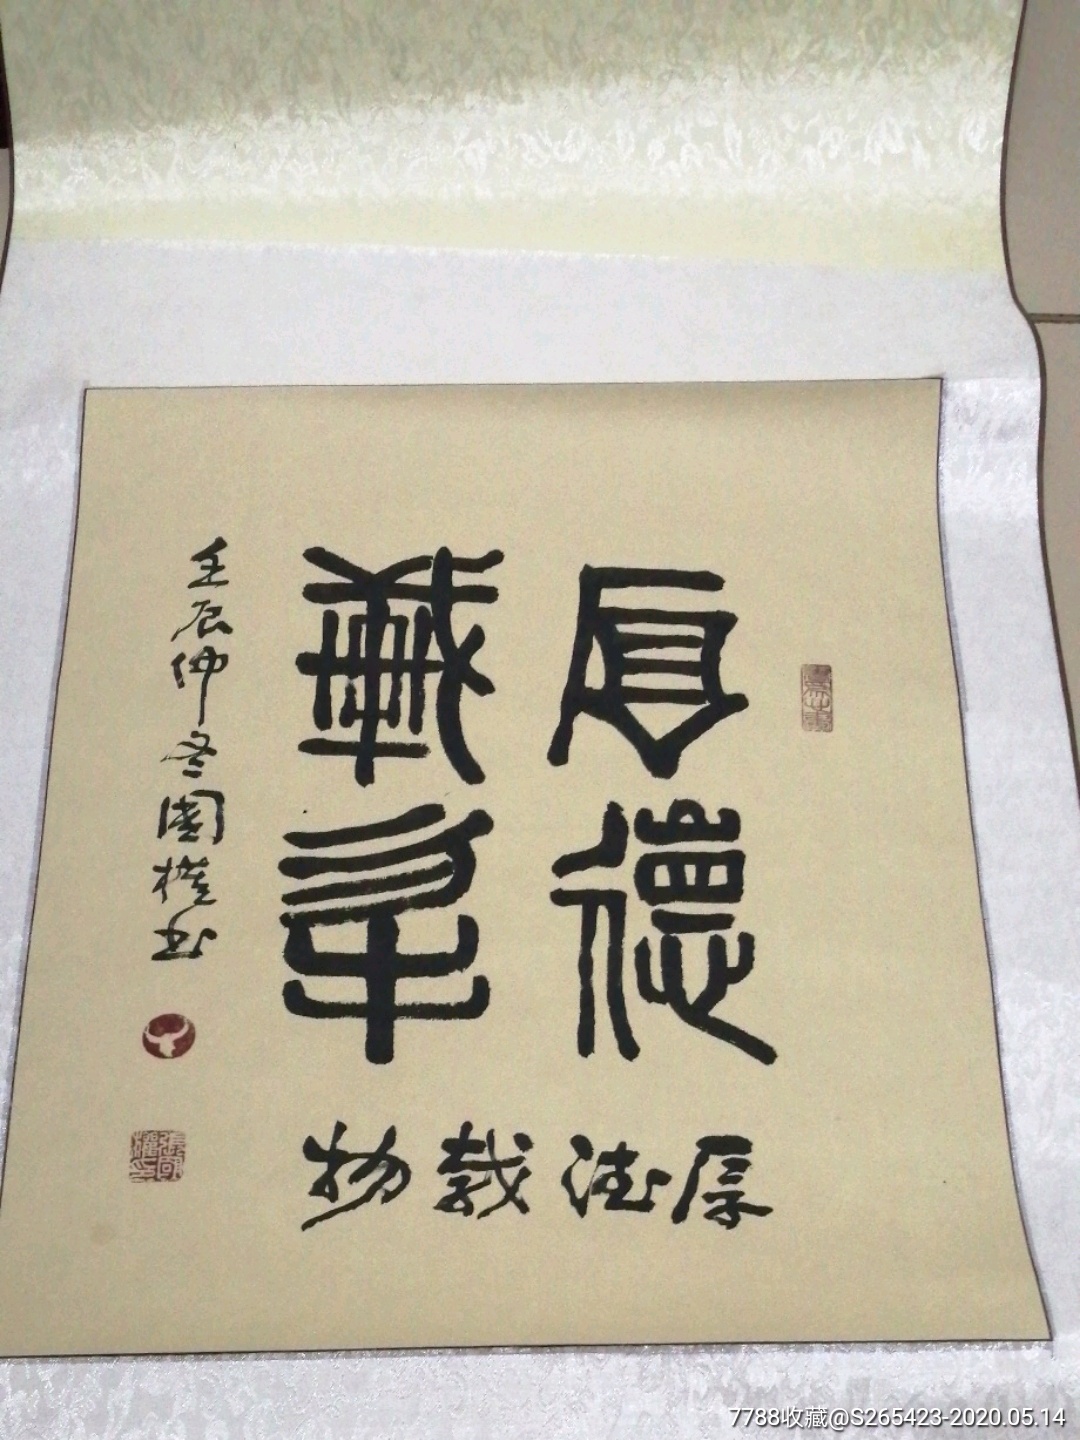 厚德
載物
厚德載物
壬辰仲冬國權书
7788收藏@S265423-2020.05.14